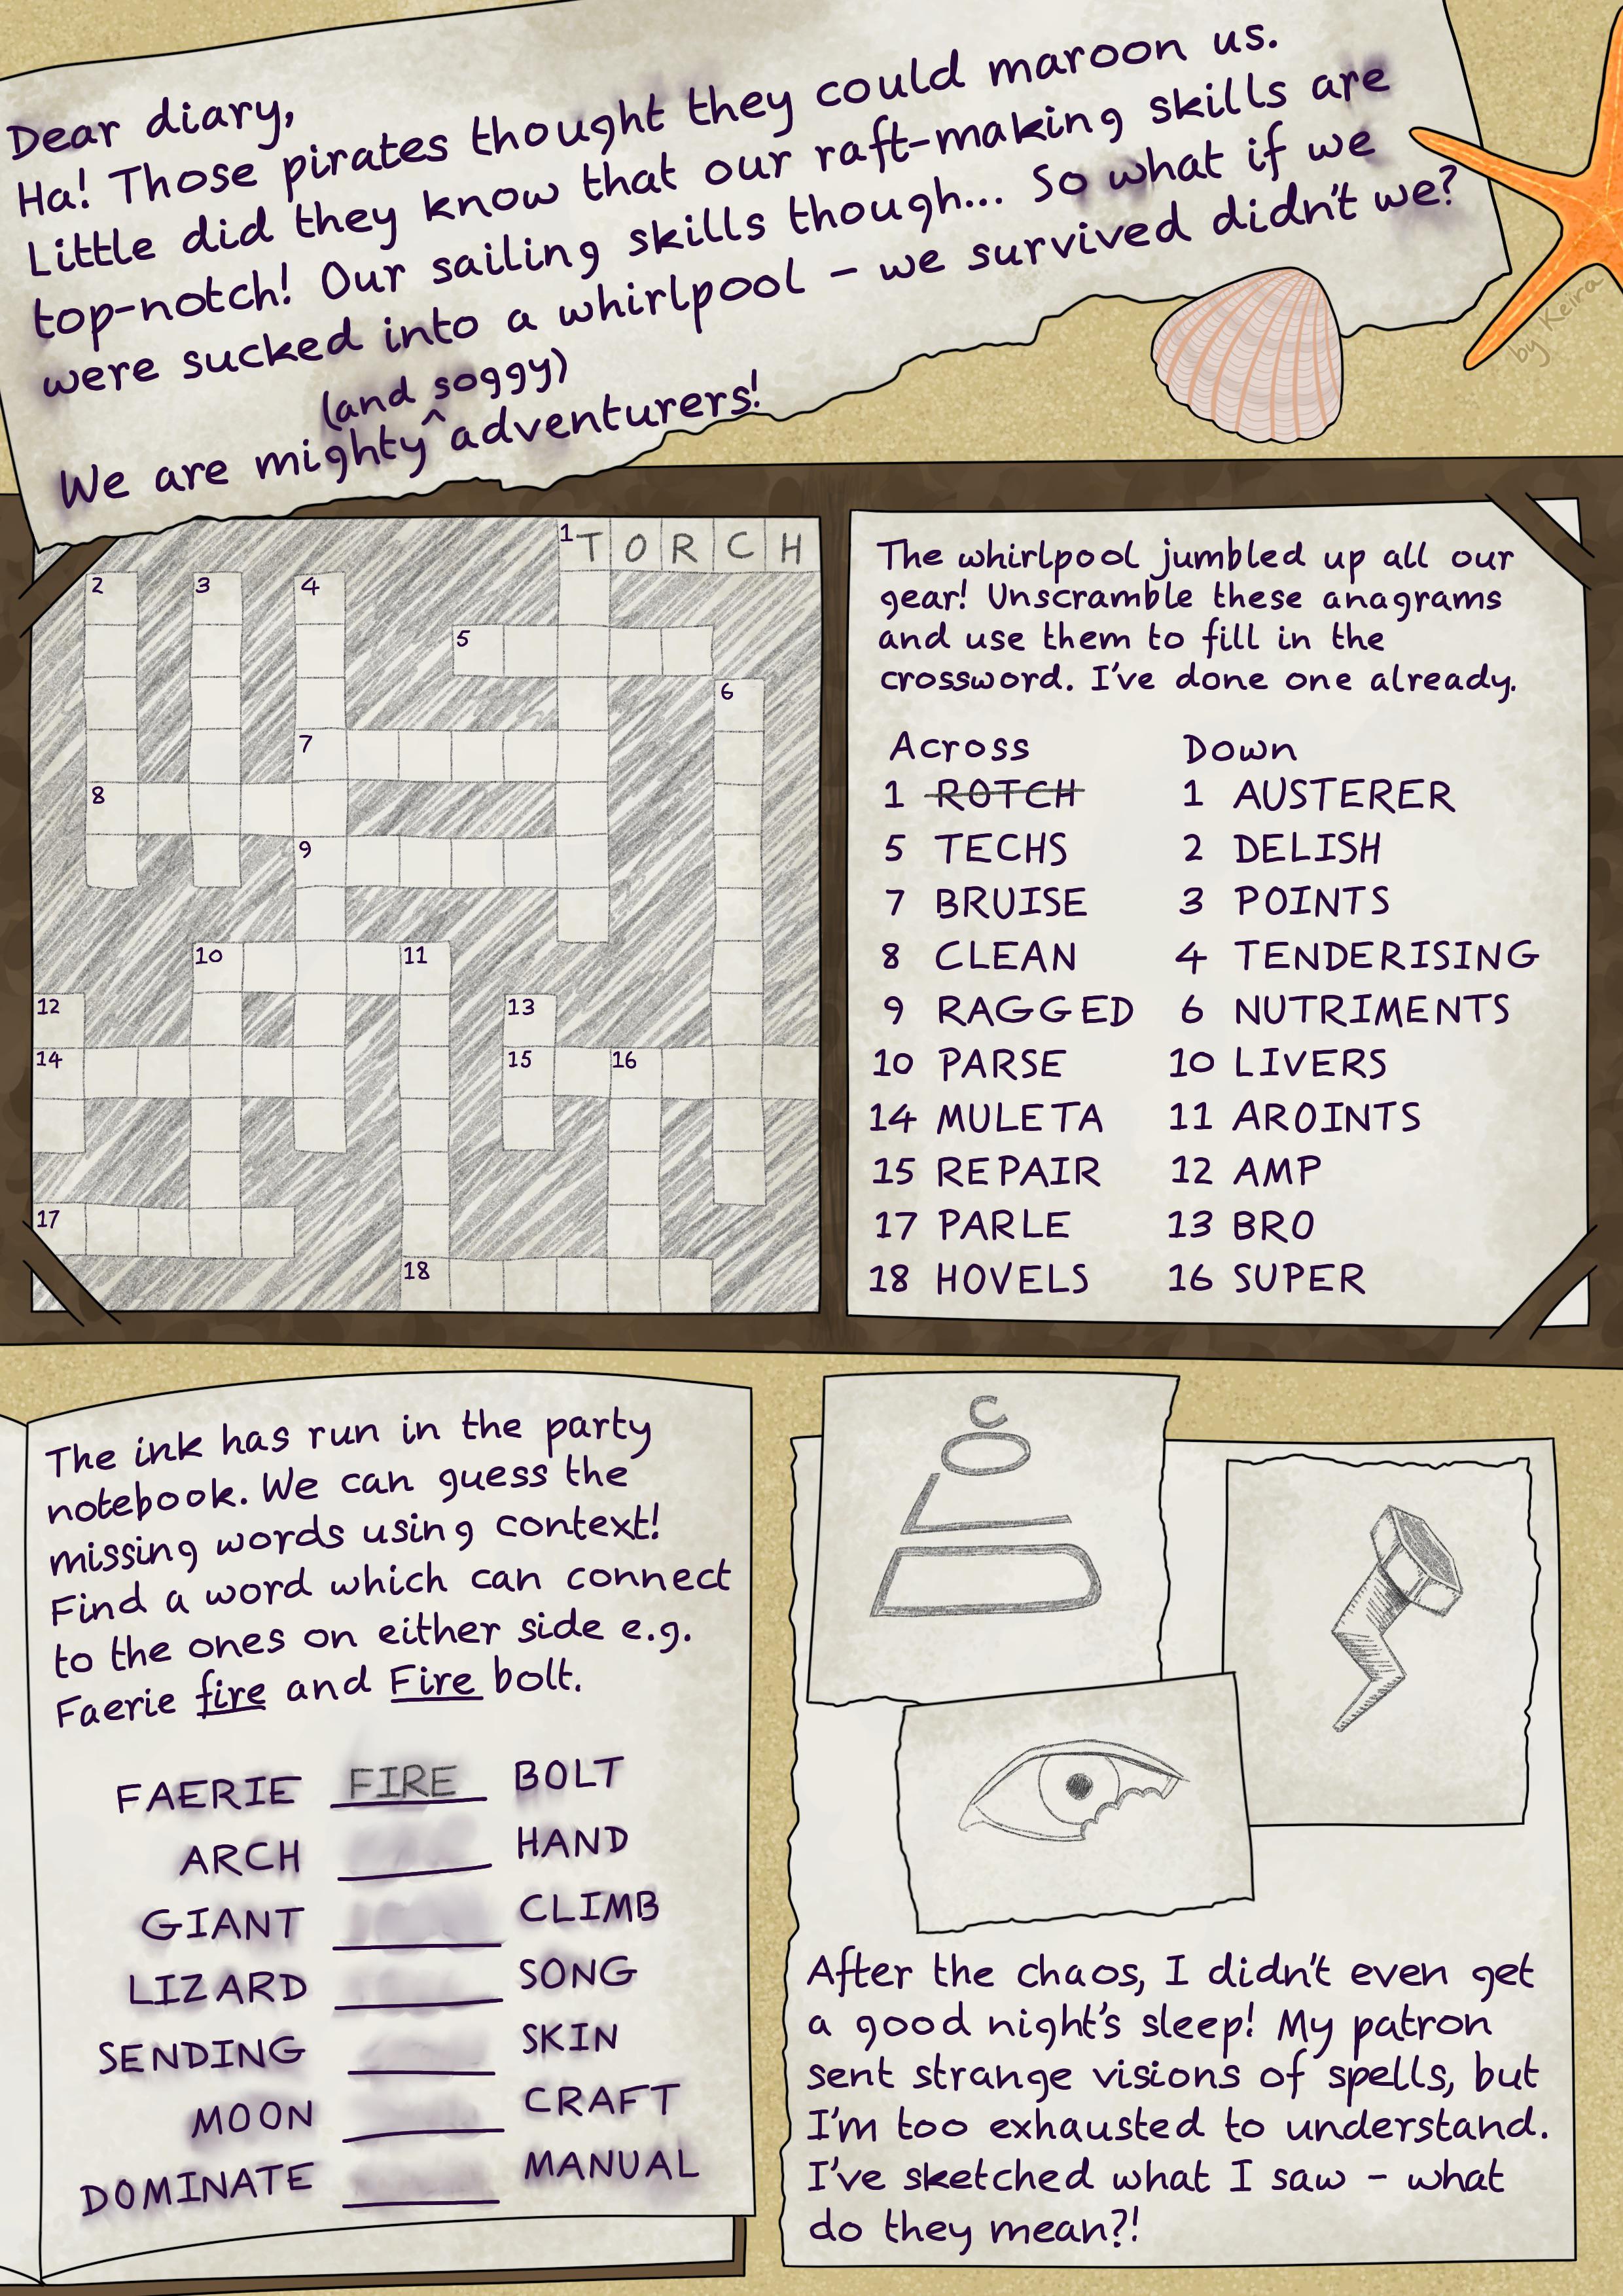 Dear diary,
Ha! Those pirates thought they could maroon us.
Little did they know that our raft-making skills are
top-notch! Our sailing skills though... So what if we
were sucked into a whirlpool – we survived didn't we?
(and soggy)
We are mighty ^ adventurers!
by Keira
1 T O R C H
2 3 4
5
6
7
8
9
10 11
12 13
14 15 16
17
18
The whirlpool jumbled up all our
gear! Unscramble these anagrams
and use them to fill in the
crossword. I've done one already.
Across
1 ROTCH
5 TECHS
7 BRUISE
8 CLEAN
9 RAGGED
10 PARSE
14 MULETA
15 REPAIR
17 PARLE
18 HOVELS
Down
1 AUSTERER
2 DELISH
3 POINTS
4 TENDERISING
6 NUTRIMENTS
10 LIVERS
11 AROINTS
12 AMP
13 BRO
16 SUPER
The ink has run in the party
notebook. We can guess the
missing words using context!
Find a word which can connect
to the ones on either side e.g.
Faerie fire and Fire bolt.
FAERIE FIRE BOLT
ARCH HAND
GIANT CLIMB
LIZARD SONG
SENDING SKIN
MOON CRAFT
DOMINATE MANUAL
After the chaos, I didn't even get
a good night's sleep! My patron
sent strange visions of spells, but
I'm too exhausted to understand.
I've sketched what I saw – what
do they mean?!